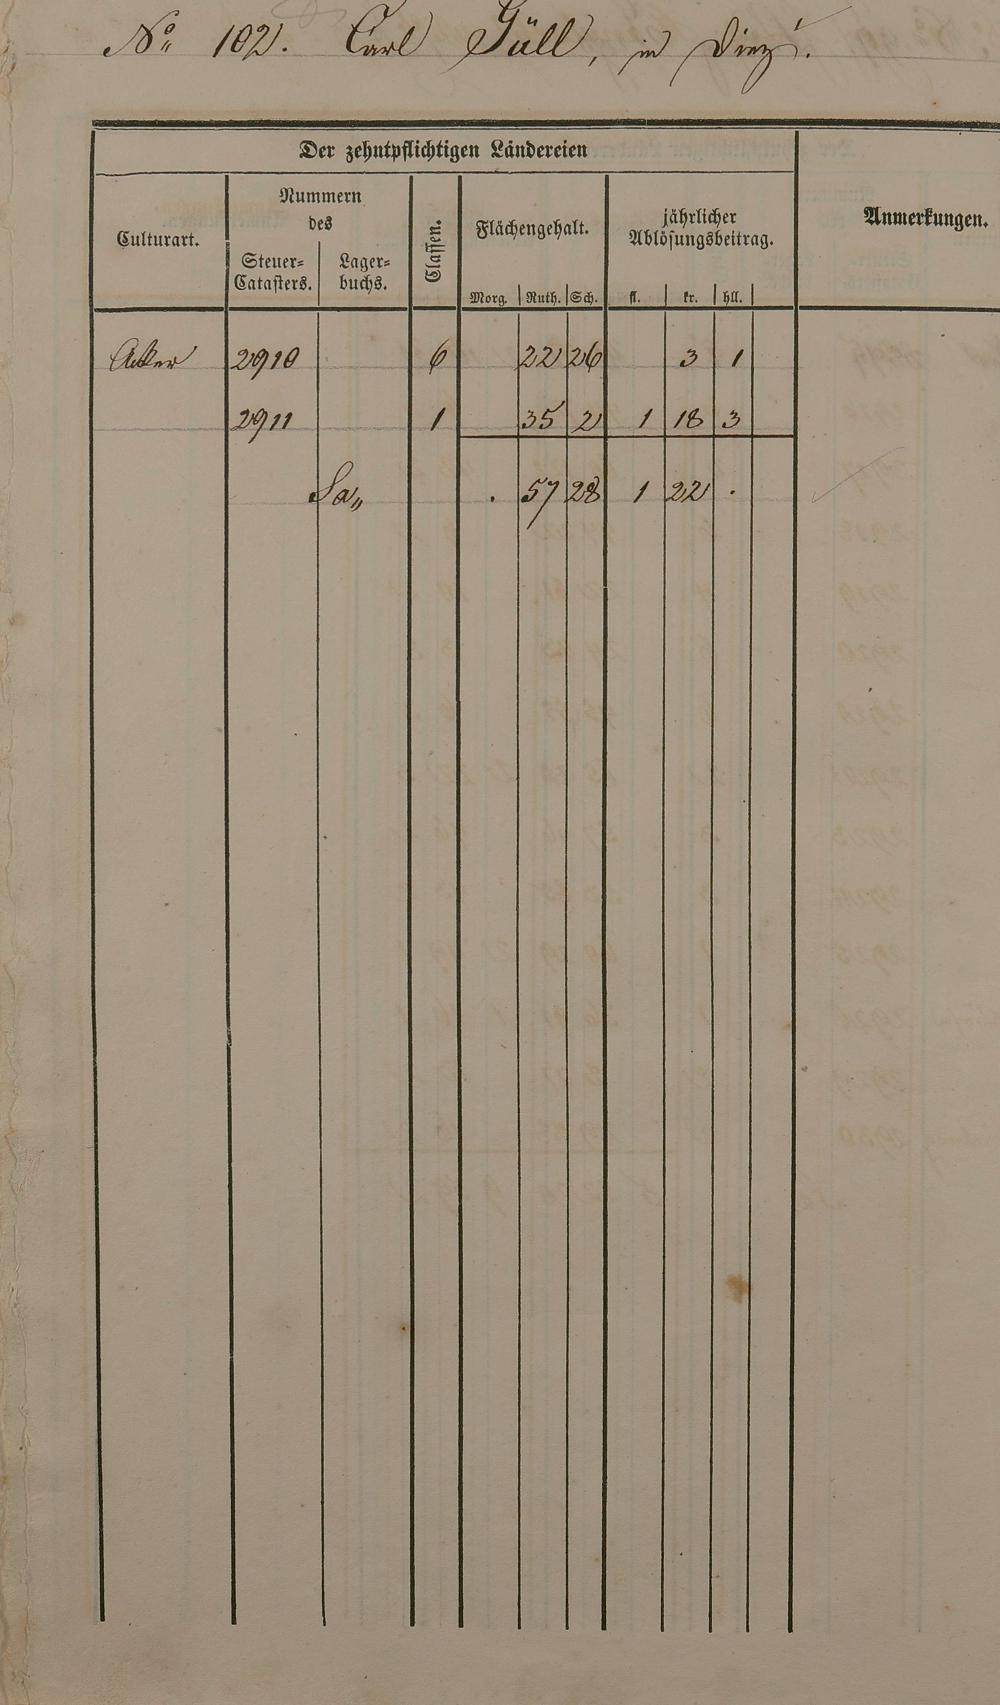 No. 102. Carl Güll, in Diez.
Der zehntpflichtigen Ländereien
Culturart.
Nummern
des
Steuer-
Catasters.
Lager-
buchs.
Classen.
Flächengehalt.
Morg. Ruth. Sch.
jährlicher
Ablösungsbeitrag.
fl. kr. hll.
Anmerkungen.
Acker 2910 6 22 26 3 1
2911 1 35 2 1 18 3
Sa. . 57 28 1 22 .